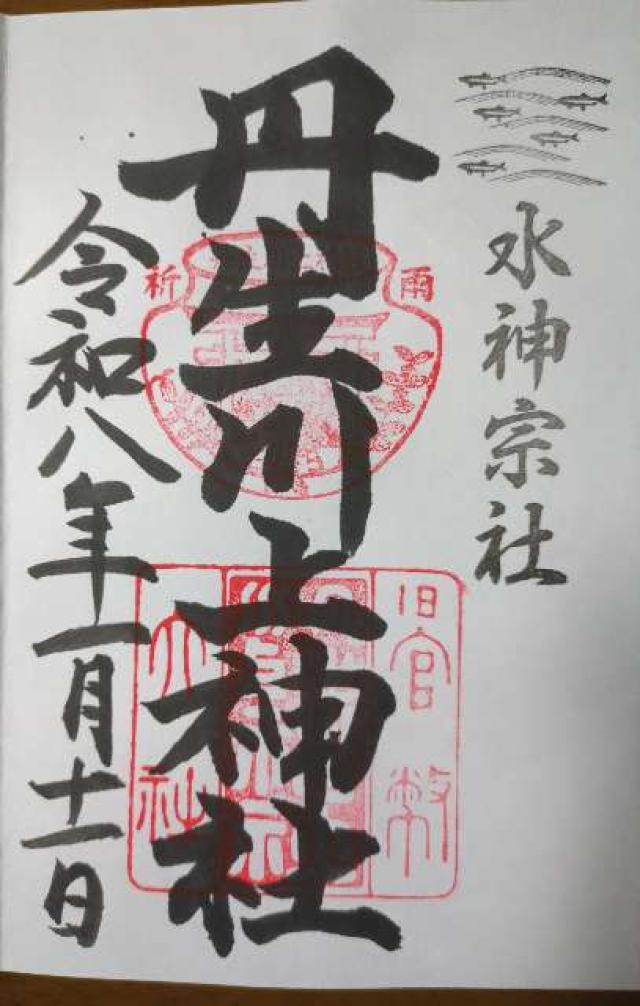 水神宗社
丹生川上神社
雨
祈
旧官幣
大社
令和八年一月十一日